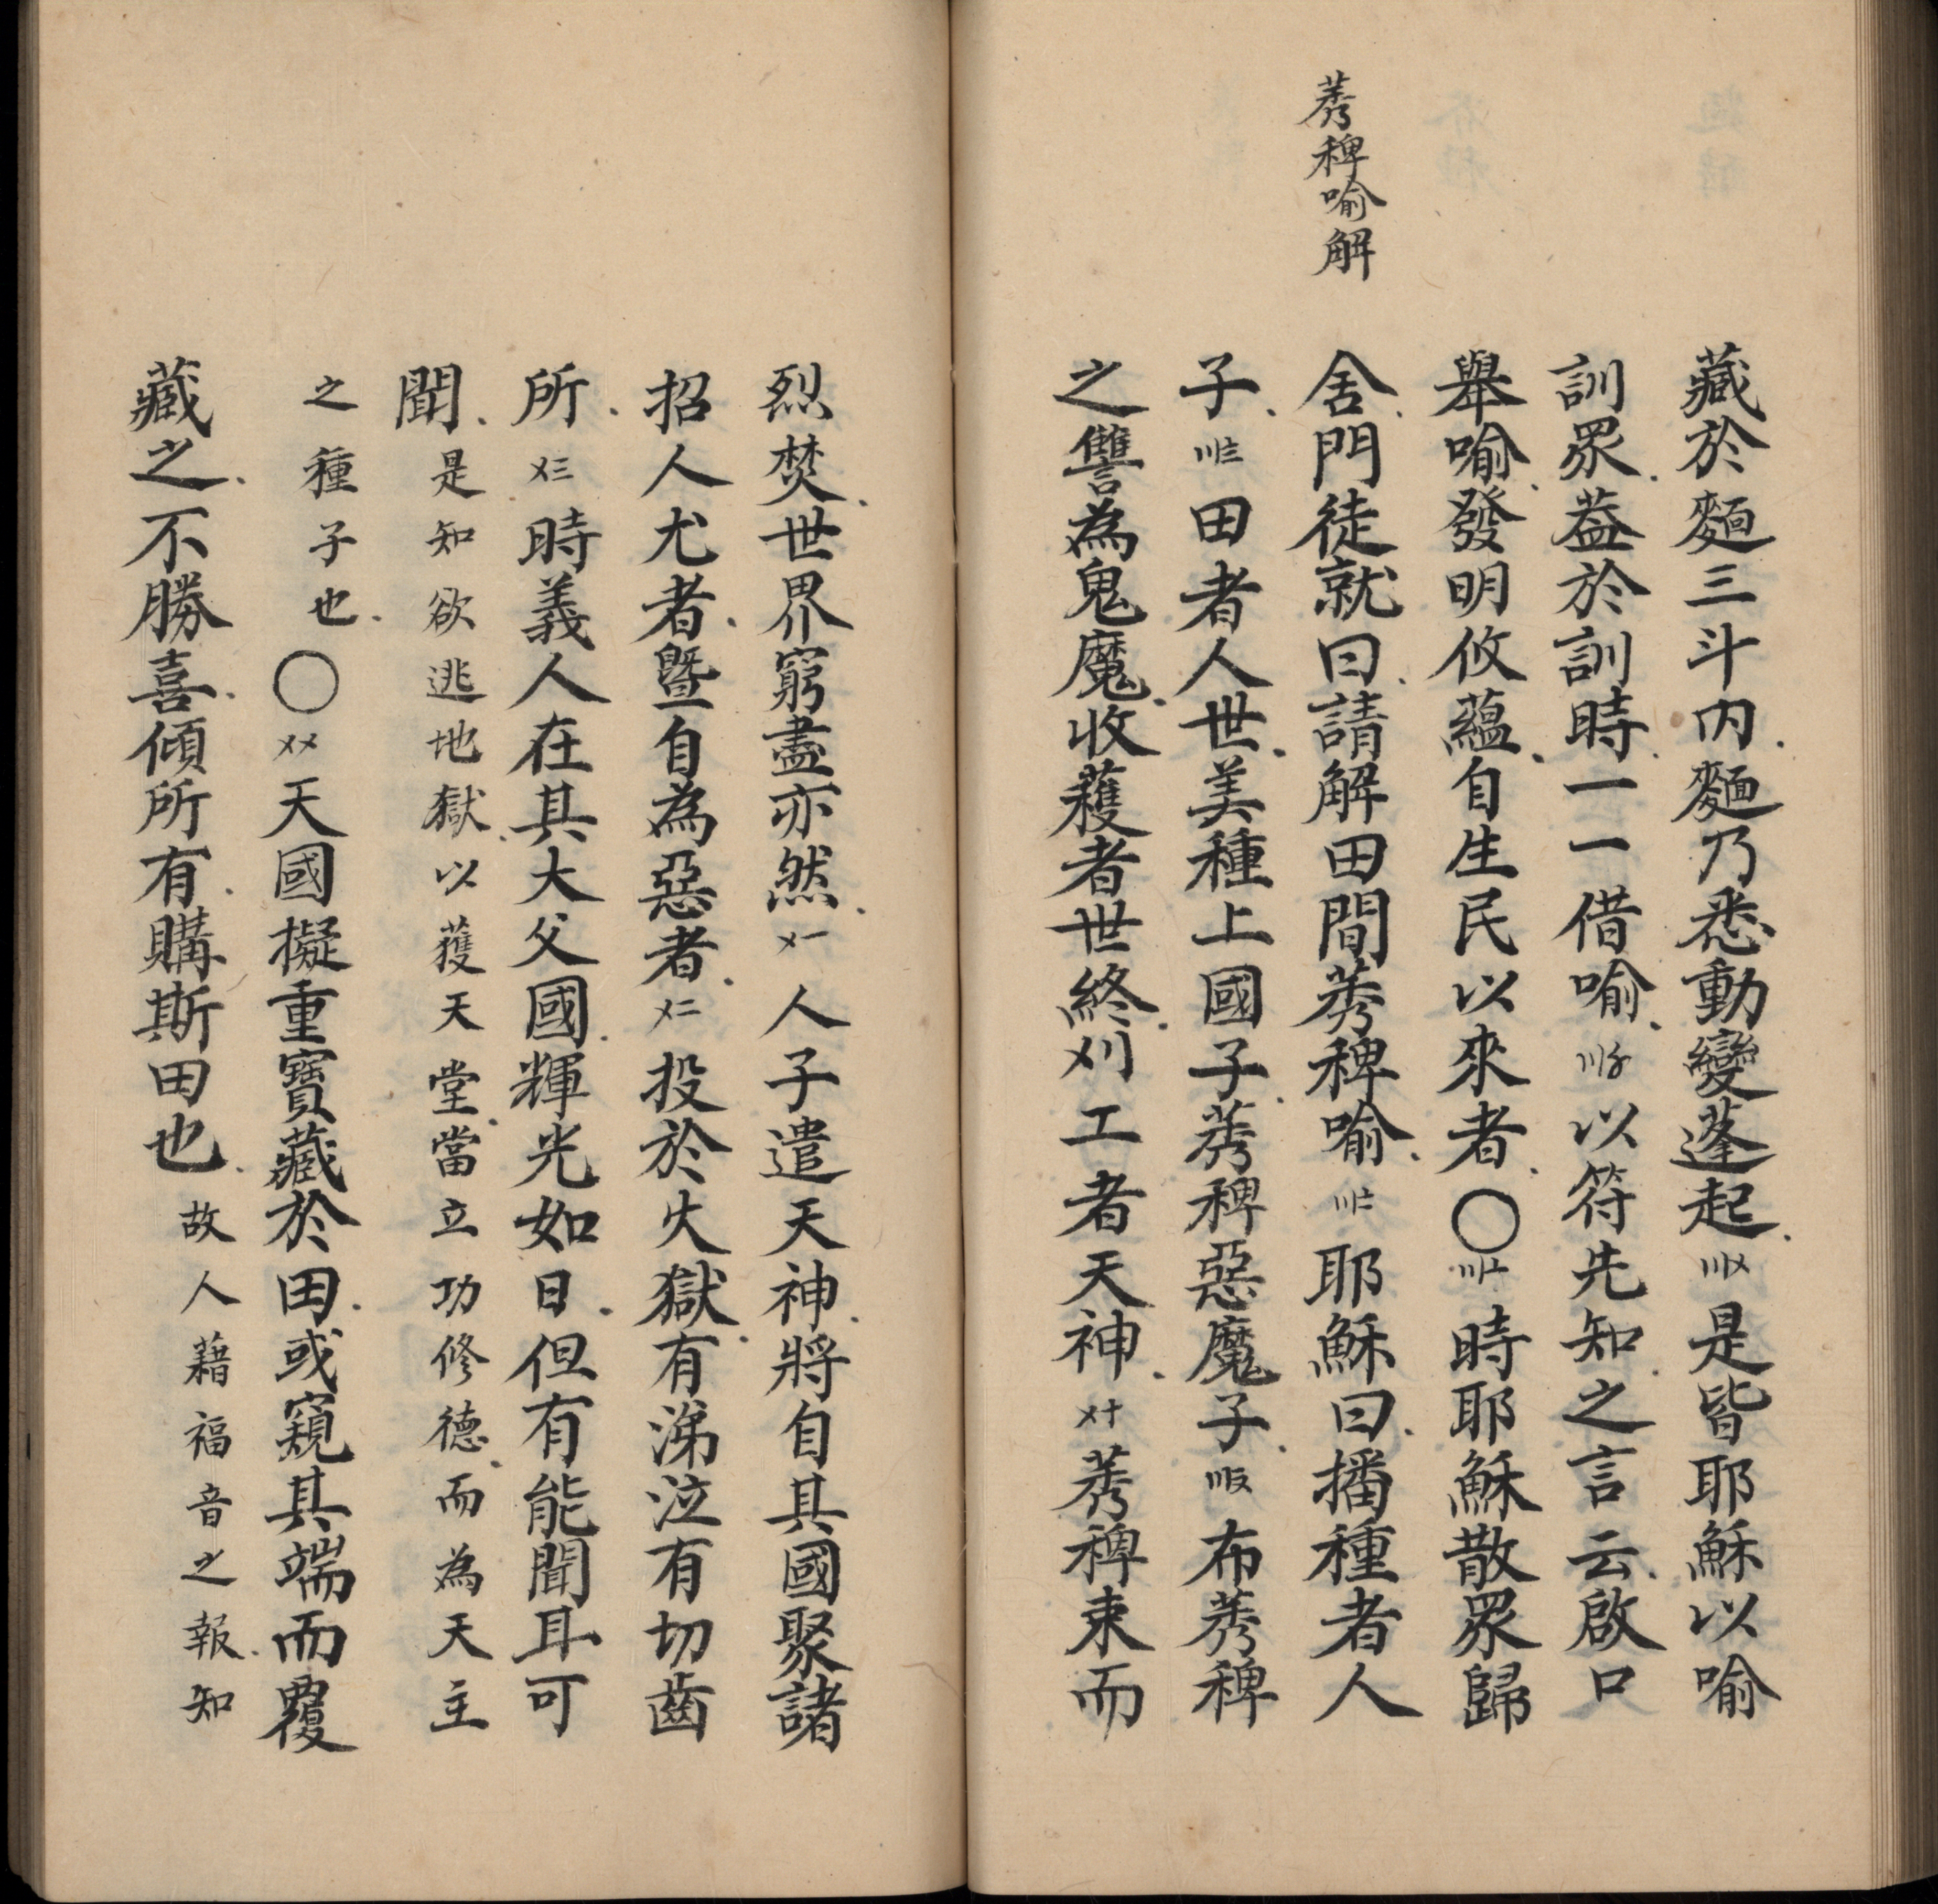 莠稗喻解
藏於麵三斗內麵乃悉動變蓬起〣〤是皆耶穌以喻
訓眾葢於訓時一一借喻〣〥以符先知之言云啟口
舉喻發明攸蘊自生民以來者〇〣〦時耶穌散眾歸
舍門徒就曰請解田間莠稗喻〣〧耶穌曰播種者人
子〣〨田者人世美種上國子莠稗惡魔子〣〩布莠稗
之讐為鬼魔收穫者世終刈工者天神〤十莠稗束而
烈焚世界窮盡亦然〤一人子遣天神將自其國聚諸
招人尤者暨自為惡者〤二投於火獄有涕泣有切齒
所〤三時義人在其大父國輝光如日但有能聞耳可
聞是知欲逃地獄以獲天堂當立功修德而為天主
之種子也〇〤〤天國擬重寶藏於田或窺其端而覆
藏之不勝喜傾所有購斯田也故人藉福音之報知